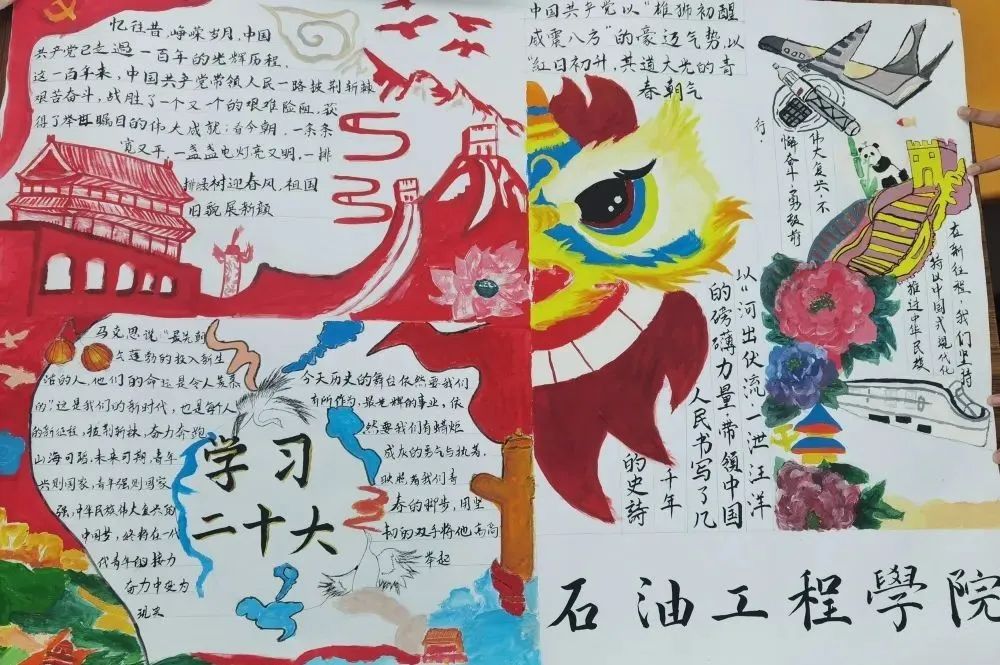 忆往昔,峥嵘岁月,中国
共产党已走过一百年的光辉历程,
这一百年来,中国共产党带领人民一路披荆斩棘
艰苦奋斗,战胜了一个又一个的艰难险阻,获
得了举世瞩目的伟大成就;看今朝,一条条
宽又平,一盏盏电灯亮又明,一排
排绿树迎春风,祖国
旧貌展新颜
中国共产党以“雄狮初醒
威震八方”的豪迈气势,以
“红日初升,其道大光的青
春朝气
行.
伟大复兴,不
懈奋斗,勇毅前
在新征程,我们坚持
持以中国式现代化
推进中华民族
以“河出伏流,一泄汪洋
的磅礴力量,带领中国
人民书写了几
千年
的史詩
马克思说:“最先朝
气蓬勃的投入新生
活的人,他们的命运是令人羡慕
的”这是我们的新时代,也是每个人
的新征程,披荆斩棘,奋力奔跑
山海可蹈,未来可期,青年
兴则国家,青年强则国家
强,中华民族伟大复兴的
中国梦,终将在一代
代青年的接力
奋力中变为
现实
学习
二十大
今天历史的舞台依然要我们
有所作为,最光辉的事业,依
然要我们有蜡炬
成灰的勇气与执着,
春的脚步,用坚
韧的双手将他高高
举起
石油工程學院